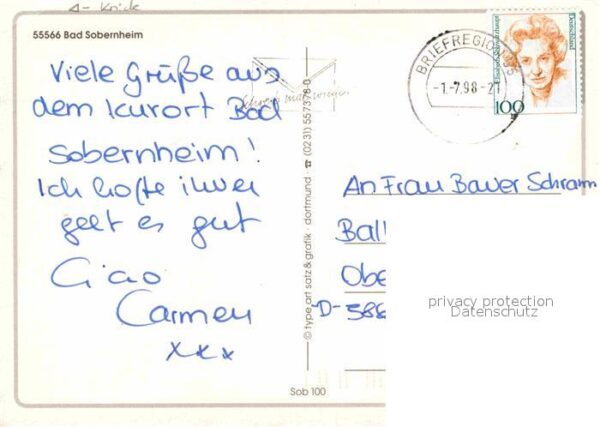 55566 Bad Sobernheim
Viele Grüße aus
dem Kurort Bad
Sobernheim!
Ich hoffe ihnen
geht es gut
Ciao
Carmen
xxx
© type art satz & grafik · dortmund · ☎ (0231) 557378-0
Sob 100
BRIEFREGION
-1.-7.98-21
Deutschland
100
An Frau Bauer Schramm
Ball
Obe
D-588
privacy protection
Datenschutz